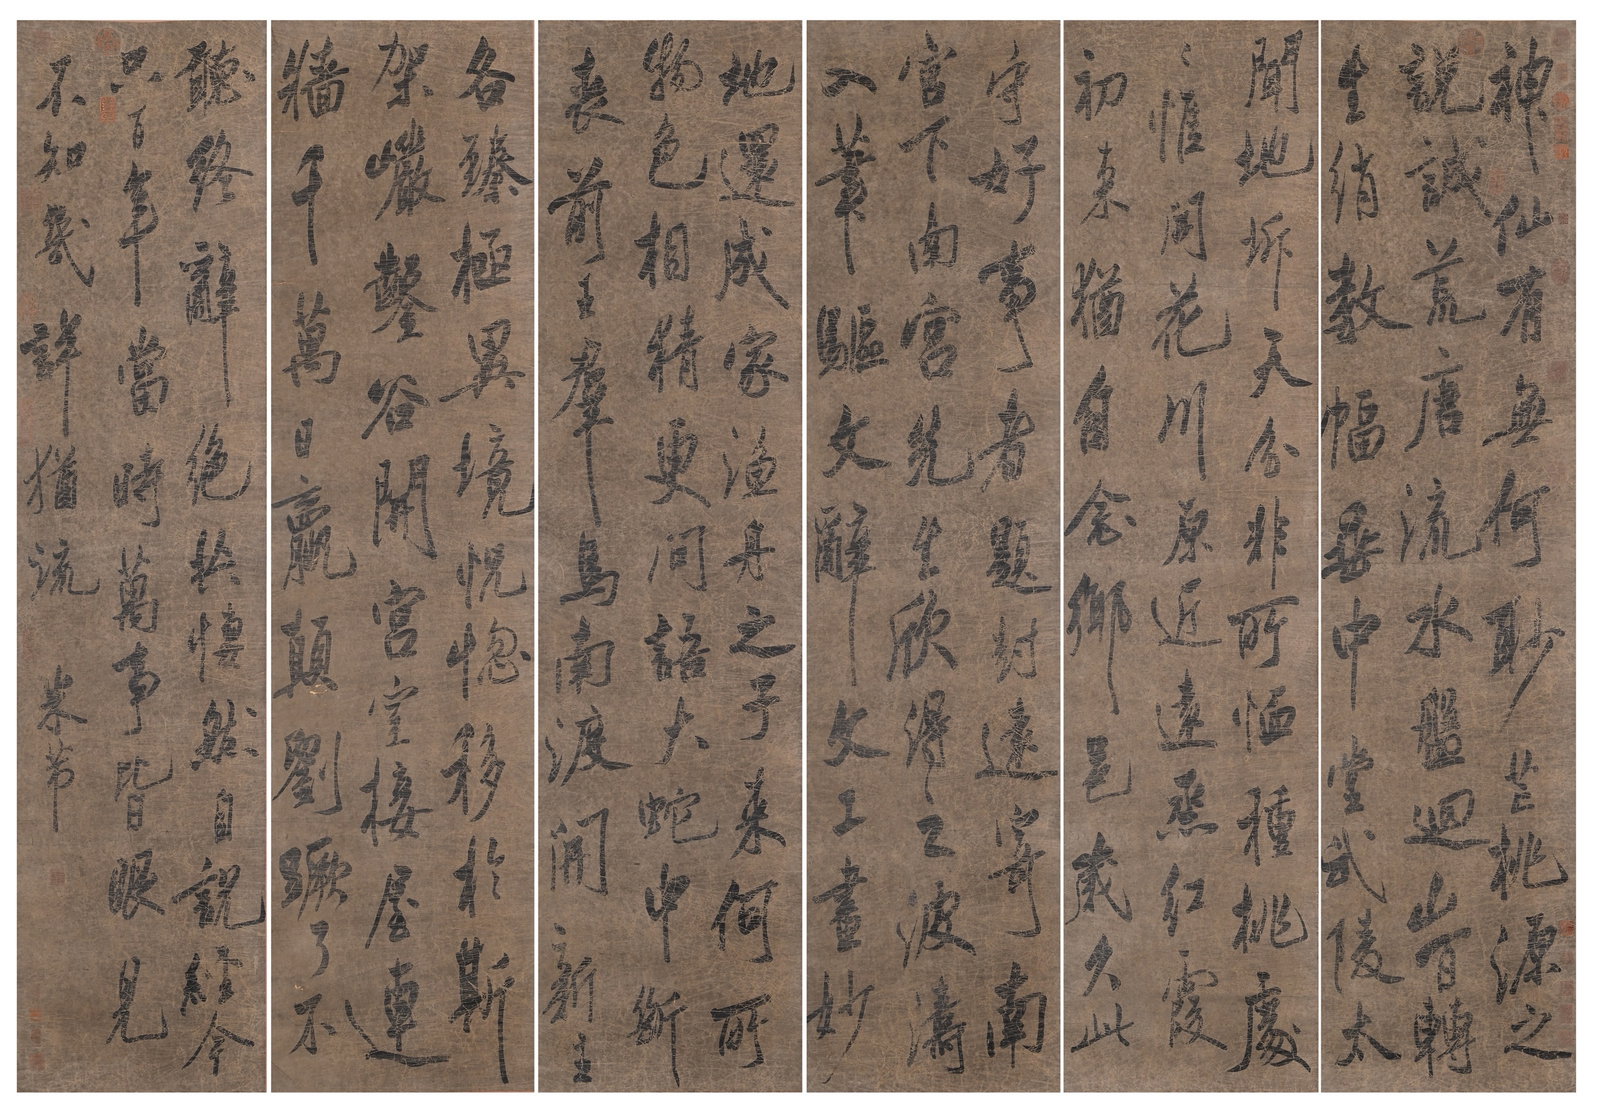 神仙有無何眇芒桃源之
說誠荒唐流水盤迴山百轉
生綃數幅垂中堂武陵太
聞地坼天分非所恤種桃處
々惟開花川原近遠烝紅霞
初來猶自念鄉邑歲久此
守好事者題封遠寄南
宮下南宮先生欣得之波濤
入筆驅文辭文工畫妙
地還成家漁舟之子來何所
物色相猜更問語大蛇中斷
喪前王羣馬南渡開新主
各臻極異境恍惚移於斯
架巖鑿谷開宮室接屋連
牆千萬日嬴顛劉蹶了不
聽終辭絕共悽然自說經今
六百年當時萬事皆眼見
不知幾許猶流 米芾